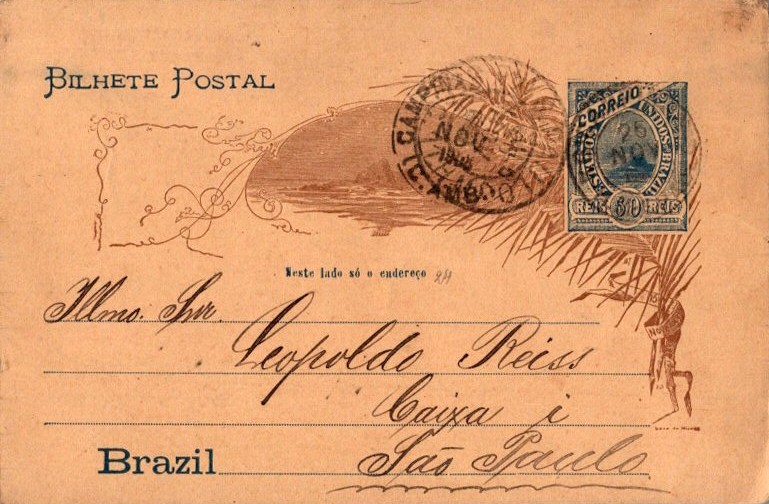 BILHETE POSTAL
CORREIO
ESTADOS UNIDOS BRAZIL
REIS 50 REIS
NOV
26
NOV
(C. AMB.
Neste lado só o endereço
Illmo. Snr.
Leopoldo Reiss
Caixa i
Brazil São Paulo